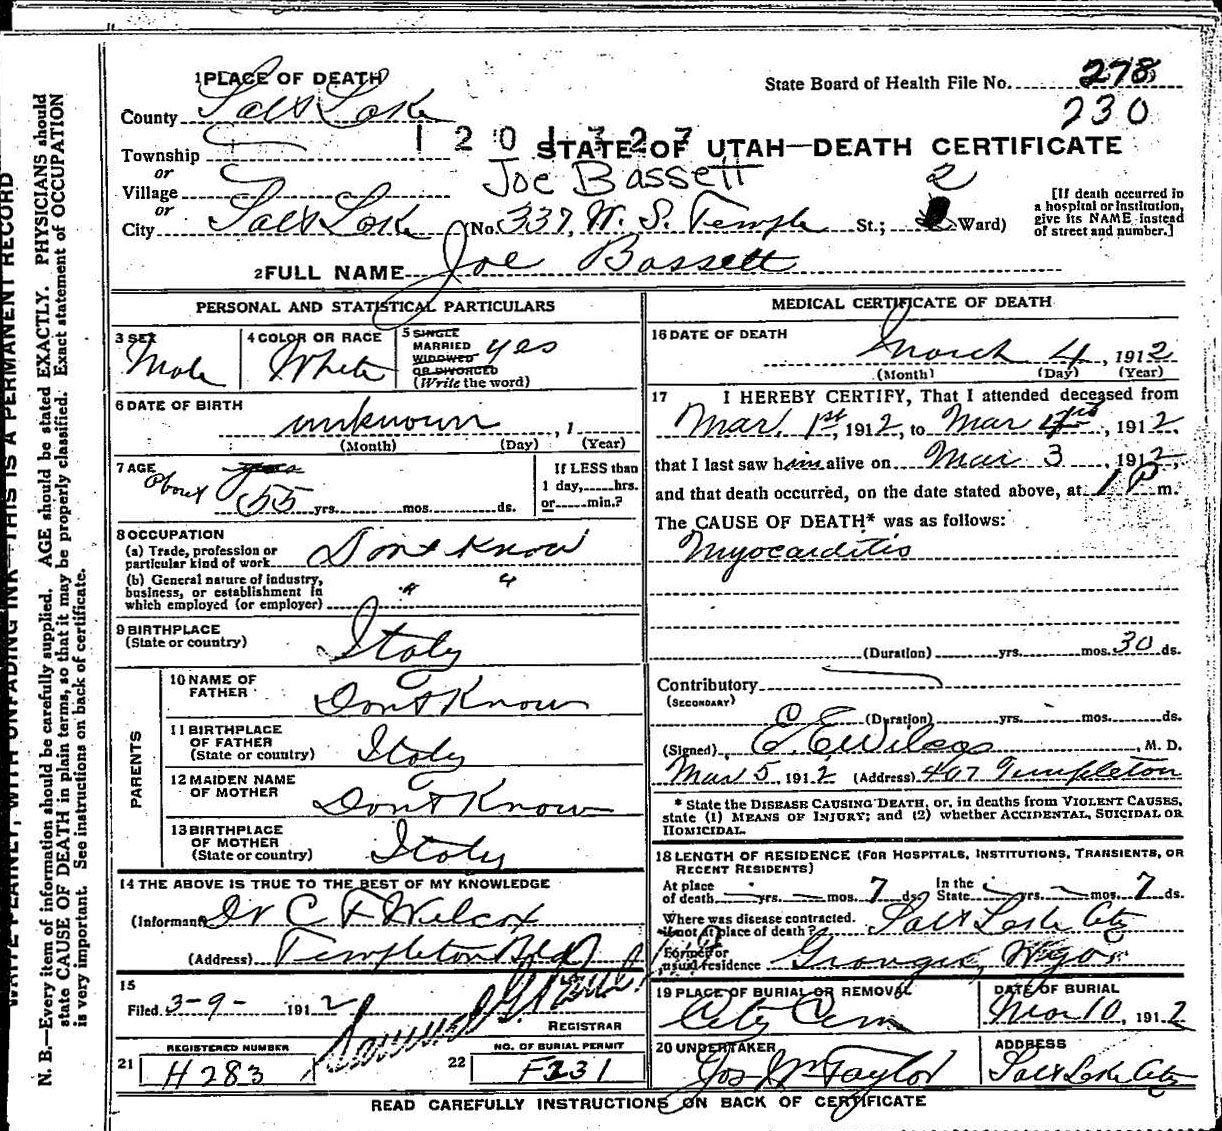 1 PLACE OF DEATH
State Board of Health File No. 278
230
County Salt Lake
1 2 0 1 3 2 7
STATE OF UTAH—DEATH CERTIFICATE
Township
or
Joe Bassett
Village
or
2
[If death occurred in
a hospital or institution,
give its NAME instead
of street and number.]
City Salt Lake (No. 337, W. S. Temple St.; Ward)
2 FULL NAME Joe Bassett
PERSONAL AND STATISTICAL PARTICULARS
3 SEX
Male
4 COLOR OR RACE
White
5 SINGLE
MARRIED yes
WIDOWED
OR DIVORCED
(Write the word)
6 DATE OF BIRTH
unknown, 1
(Month) (Day) (Year)
7 AGE
About 55 yrs. mos. ds.
If LESS than
1 day, hrs.
or min.?
8 OCCUPATION
(a) Trade, profession or
particular kind of work Dont Know
(b) General nature of industry,
business, or establishment in
which employed (or employer) " "
9 BIRTHPLACE
(State or country) Italy
PARENTS
10 NAME OF
FATHER Dont Know
11 BIRTHPLACE
OF FATHER
(State or country) Italy
12 MAIDEN NAME
OF MOTHER Dont Know
13 BIRTHPLACE
OF MOTHER
(State or country) Italy
14 THE ABOVE IS TRUE TO THE BEST OF MY KNOWLEDGE
(Informant) Dr C F Wilcox
(Address) Templeton Bld
15
Filed 3-9- 1912
REGISTRAR
21 REGISTERED NUMBER
H 283
22 NO. OF BURIAL PERMIT
F231
MEDICAL CERTIFICATE OF DEATH
16 DATE OF DEATH
March 4, 1912
(Month) (Day) (Year)
17 I HEREBY CERTIFY, That I attended deceased from
Mar. 1st, 1912, to Mar 4th, 1912,
that I last saw him alive on Mar 3, 1912,
and that death occurred, on the date stated above, at 1 P m.
The CAUSE OF DEATH* was as follows:
Myocarditis
(Duration) yrs. mos. 30 ds.
Contributory
(SECONDARY)
(Duration) yrs. mos. ds.
(Signed) M. D.
Mar 5, 1912 (Address) 407 Templeton
* State the DISEASE CAUSING DEATH, or, in deaths from VIOLENT CAUSES,
state (1) MEANS OF INJURY; and (2) whether ACCIDENTAL, SUICIDAL OR
HOMICIDAL.
18 LENGTH OF RESIDENCE (FOR HOSPITALS, INSTITUTIONS, TRANSIENTS, OR
RECENT RESIDENTS)
At place
of death yrs. mos. 7 ds.
In the
State yrs. mos. 7 ds.
Where was disease contracted.
if not at place of death? Salt Lake City
Former or
usual residence Wyo
19 PLACE OF BURIAL OR REMOVAL
City Cem
DATE OF BURIAL
Mar 10, 1912
20 UNDERTAKER
Jos Wm Taylor
ADDRESS
Salt Lake City
READ CAREFULLY INSTRUCTIONS ON BACK OF CERTIFICATE
WRITE PLAINLY, WITH UNFADING INK—THIS IS A PERMANENT RECORD
N. B.—Every item of information should be carefully supplied. AGE should be stated EXACTLY. PHYSICIANS should
state CAUSE OF DEATH in plain terms, so that it may be properly classified. Exact statement of OCCUPATION
is very important. See instructions on back of certificate.